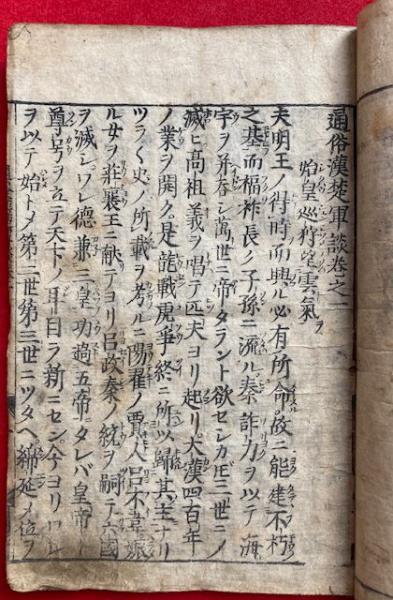 通俗漢楚軍談卷之一
始皇巡狩望雲氣
夫明王ノ得時而興ル必有所命故ニ能建不朽
之基而福祚長ノ子孫ニ流ル秦詐力ヲ以テ海
宇ヲ并呑シ萬世ニ帝タラント欲セシカ𪜈三世ニメ
滅ヒ高祖義ヲ唱テ匹夫ヨリ起リ大漢四百年
ノ業ヲ開ク是龍戰虎爭終ニ所以歸其主ナリ
ツラ〱史ノ所載ヲ考ルニ陽翟ノ賈人呂不韋娠
ル女ヲ莊襄王ニ献テヨリ呂政秦ノ統ヲ嗣テ六國
ヲ滅シワレ德兼三皇功過五帝ニタレバ皇帝ト
尊号ヲ立テ天下ノ耳目ヲ新ニセン今ヨリワレ
ヲ以テ始トメ第二世第三世ニツタヘ綿延メ位ヲ